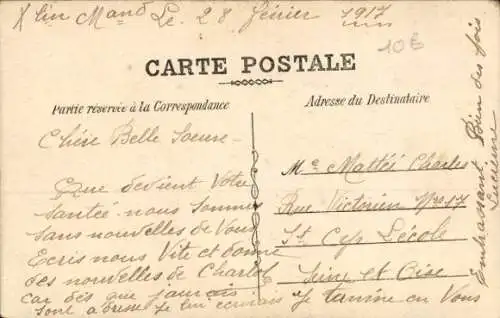 X lin Mand Le. 28 février 1917
10E
CARTE POSTALE
Partie réservée à la Correspondance
Adresse du Destinataire
Chère Belle Soeur
Que devient Votre
santée nous sommes
sans nouvelles de Vous
Ecris nous Vite et donne
des nouvelles de Charlot
car dès que jamais
sont adresse je lui écrirais Je termine en Vous
Embrassant Bien des fois
Me Mattéi Charles
Rue Victorien No 17
St Cyr L'école
Seine et Oise